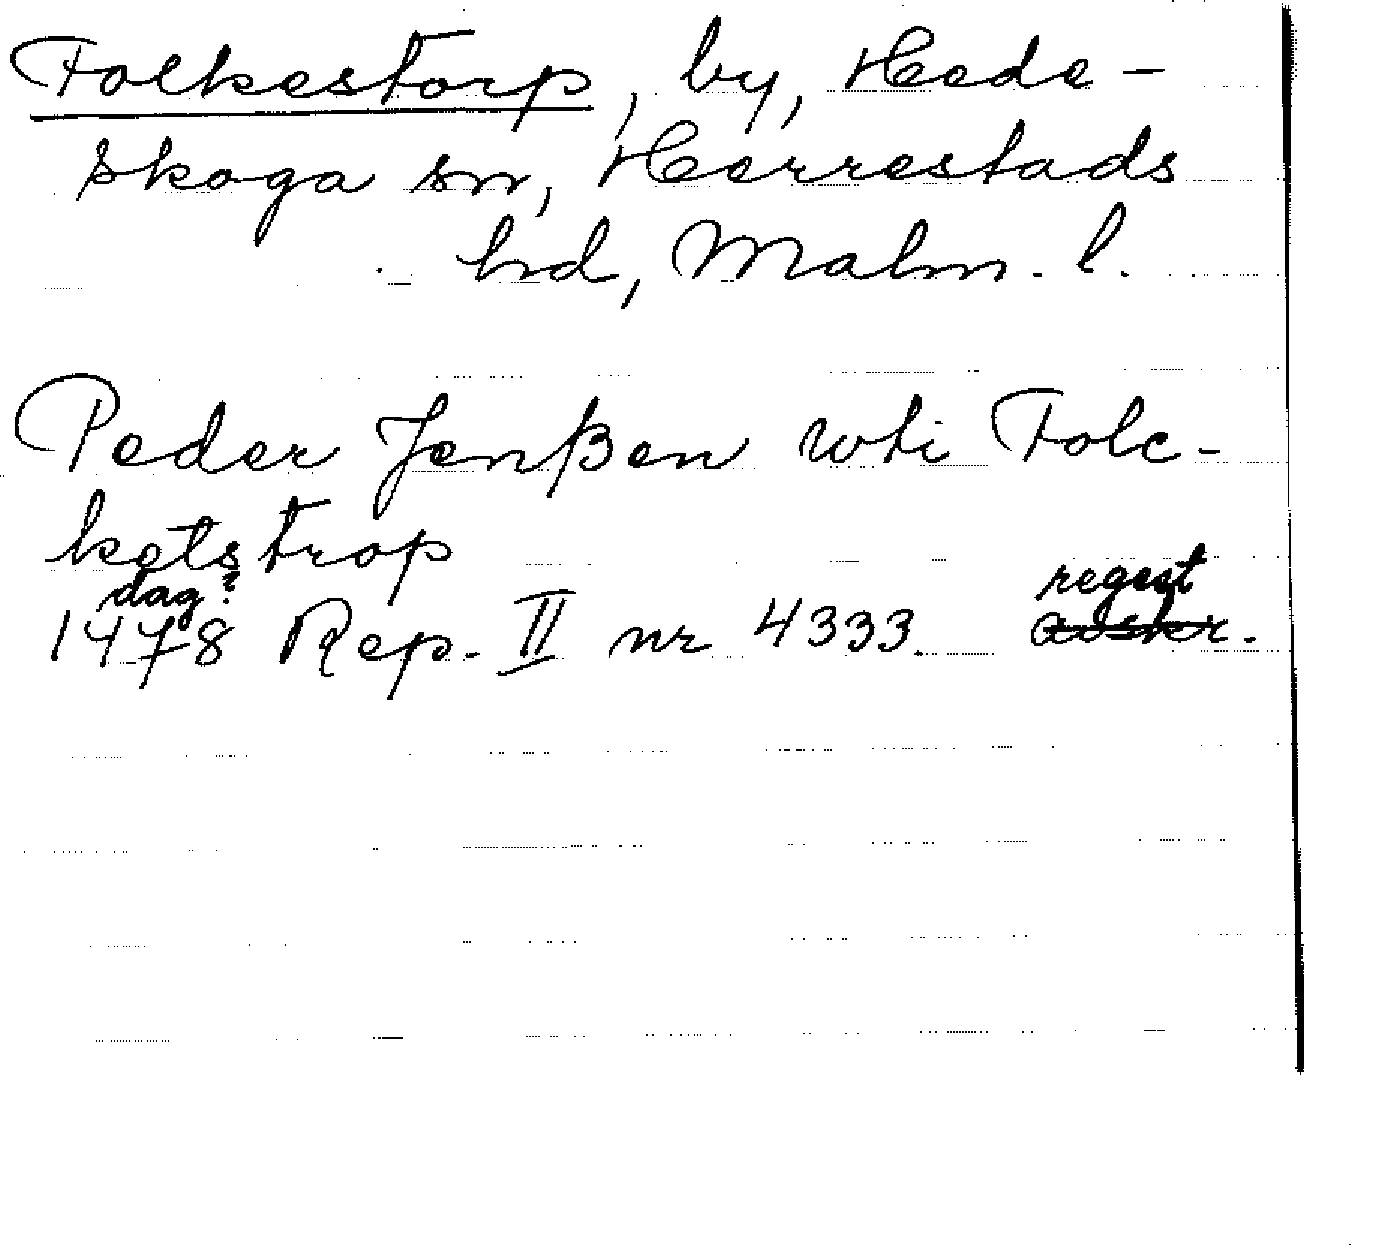 Folkestorp, by, Hede-
skoga sn, Herrestads
hd, Malm. l.
Peder Jenßen wti Folc-
ketstrop
dag? regest
1478 Rep. II nr 4333. avskr.